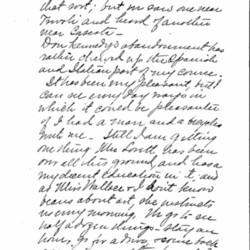 that sort; but we saw one near
Tivoli, and heard of another
near Caserta.
Don Kennedy's abandonment has
rather cleared up the Spanish
and Italian part of my course.
It has been very pleasant, but I
can see every day ways in
which it could be pleasanter
if I had a man and a bicycle
with me. Still I am getting
one thing. Miss Lovett has been
over all this ground, and has a
very decent education in it, and
as Miss Wallace & I don't know
beans about art, she instructs
us every morning. We go to see
half a dozen things, stay an
hour, go for a drive, come back